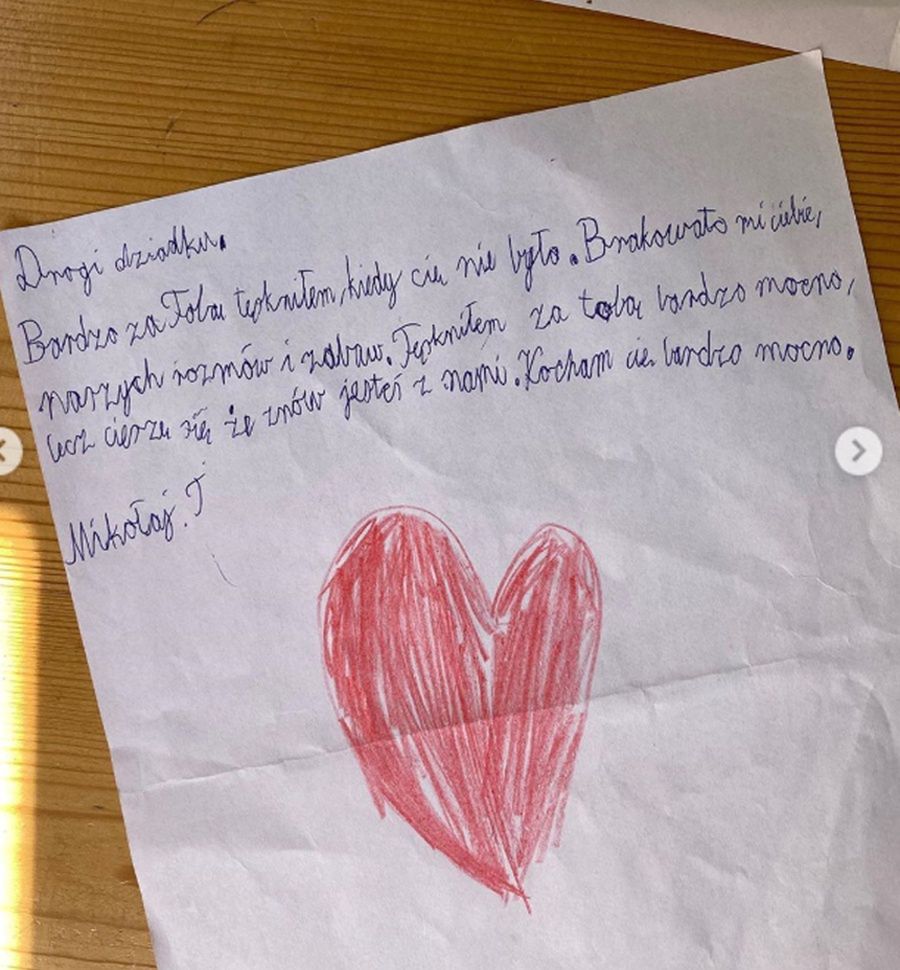 Drogi dziadku.
Bardzo za Tobą tęskniłem, kiedy cię nie było. Brakowało mi ciebie,
naszych rozmów i zabaw. Tęskniłem za tobą bardzo mocno,
lecz cieszę się że znów jesteś z nami. Kocham cię bardzo mocno.
Mikołaj. T